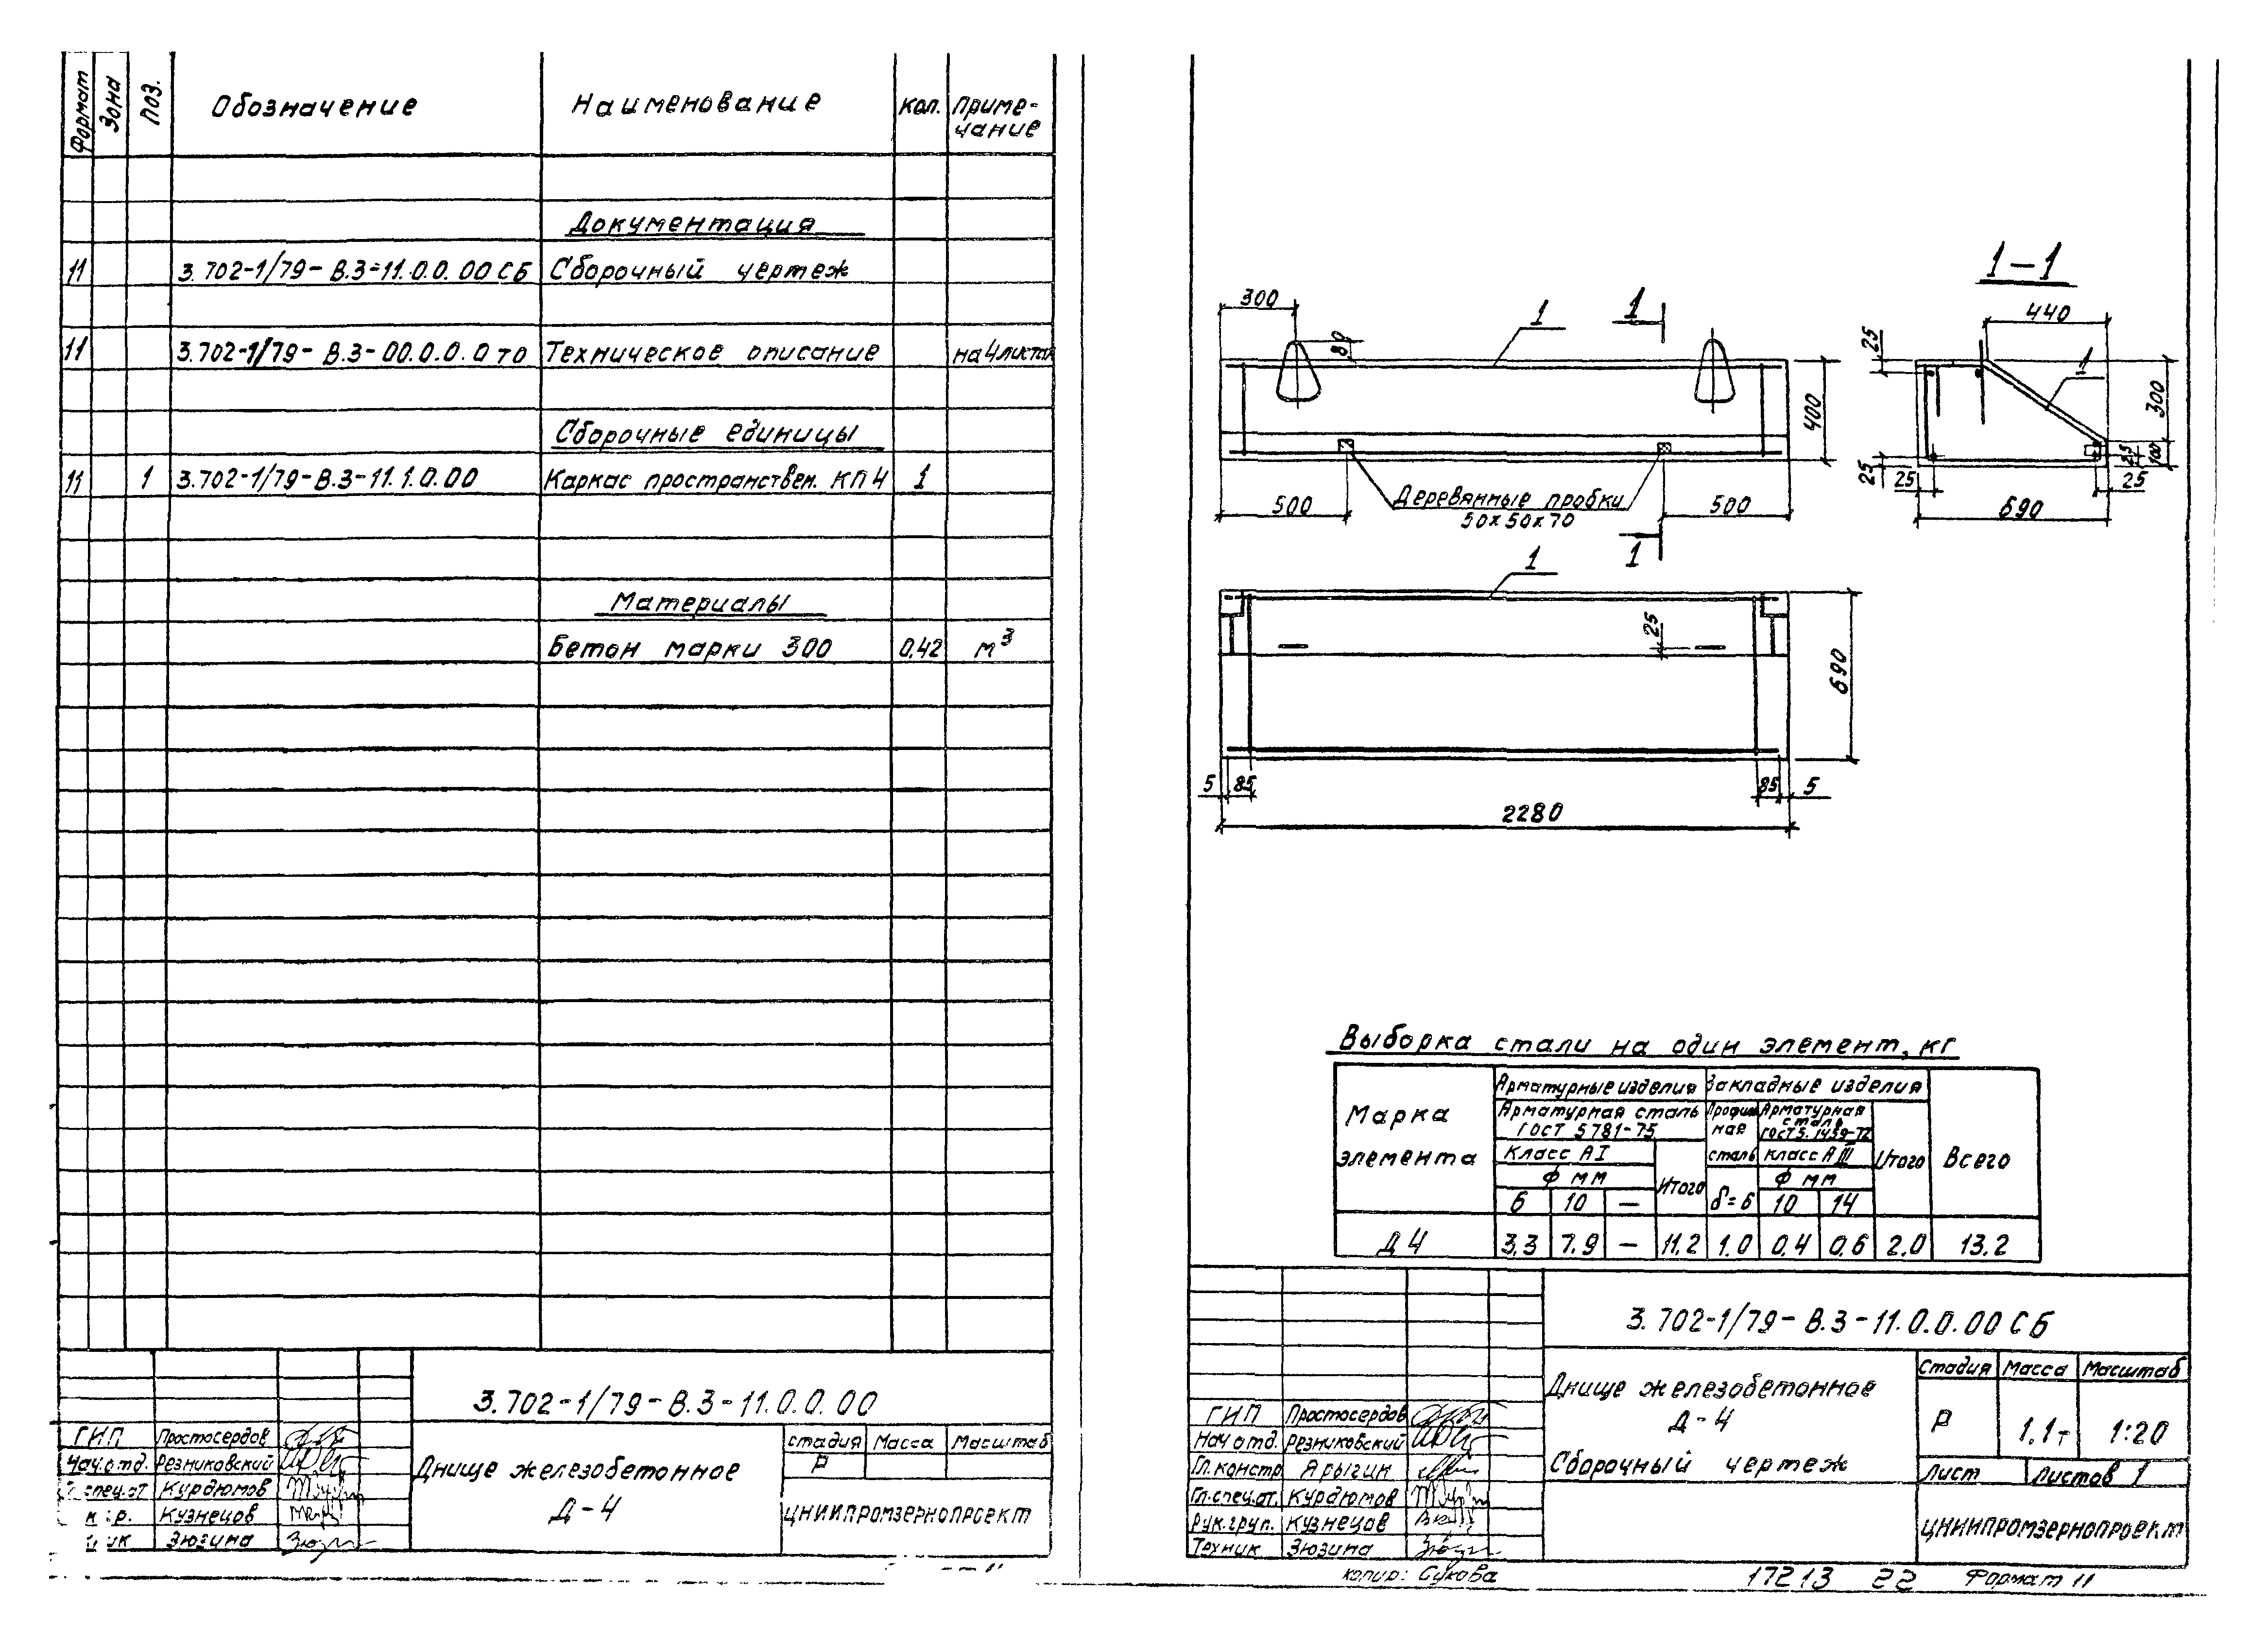 Формат
Зона
Поз.
Обозначение
Наименование
Кол.
Приме-
чание
Документация
11 3.702-1/79-В.3-11.0.0.00 СБ Сборочный чертеж
11 3.702-1/79-В.3-00.0.0.0 ТО Техническое описание на 4 листах
Сборочные единицы
11 1 3.702-1/79-В.3-11.1.0.00 Каркас пространствен. КП4 1
Материалы
Бетон марки 300 0,42 м³
3.702-1/79-В.3-11.0.0.00
ГИП Простосердов
Нач.отд. Резниковский
спец.от Курдюмов
Кузнецов
Зюзина
Днище железобетонное
Д-4
стадия Масса Масштаб
Р
ЦНИИПРОМЗЕРНОПРОЕКТ
1-1
300
80
1
1
440
25
1
400
300
25
100
25
25
25
690
500
Деревянные пробки
50х50х70
500
1
1
25
690
5
85
85
5
2280
Выборка стали на один элемент, кг
Марка
элемента
Арматурные изделия
Закладные изделия
Всего
Арматурная сталь
ГОСТ 5781-75
Профиль
ная
сталь
Арматурная
сталь
ГОСТ 5.1459-72
Класс А I
Итого
класс А III
Итого
Ф мм
Ф мм
6 10 —
δ=6
10 14
Д4 3.3 7.9 — 11.2 1.0 0.4 0.6 2.0 13.2
3.702-1/79-В.3-11.0.0.00 СБ
Днище железобетонное
Д-4
Сборочный чертеж
Стадия Масса Масштаб
Р 1.1т 1:20
Лист Листов 1
ЦНИИПРОМЗЕРНОПРОЕКТ
ГИП Простосердов
Нач отд. Резниковский
Гл.констр Ярыгин
Гл.спец.от. Курдюмов
Рук.груп. Кузнецов
Техник Зюзина
копир: Сукова
17213 22 Формат 11